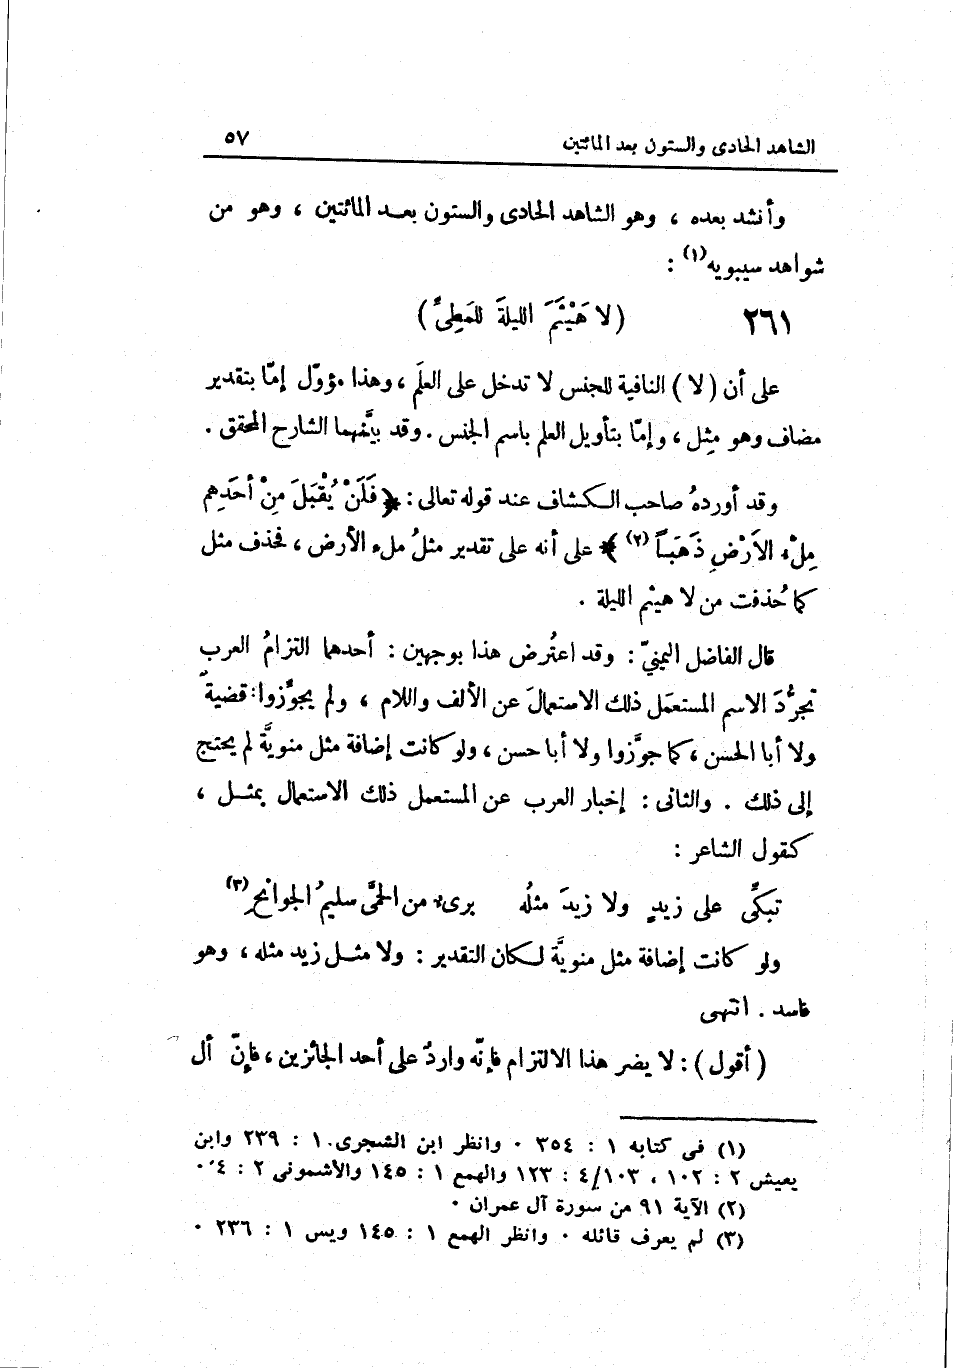 الشاهد الحادى والستون بعد المائتين ٥٧
وأنشد بعده ، وهو الشاهد الحادى والستون بعـد المائتين ، وهو من
شواهد سيبويه(١) :
٢٦١ (لا هَيْثَمَ الليلةَ للمَطِىِّ)
على أن (لا) النافية للجنس لا تدخل على العلَم ، وهذا مؤوّل إمّا بتقدير
مضاف وهو مِثل ، وإمّا بتأويل العلم باسم الجنس . وقد بيَّنهما الشارح المحقق .
وقد أوردهُ صاحب الكشاف عند قوله تعالى : ﴿ فَلَنْ يُقْبَلَ مِنْ أَحَدِهِم
مِلْءُ الأَرْضِ ذَهَبَاً(٢) ﴾ على أنه على تقدير مثلُ ملء الأرض ، فحذف مثل
كما حُذفت من لا هيثم الليلة .
قال الفاضل اليمنيّ : وقد اعتُرض هذا بوجهين : أحدهما التزامُ العرب
تجرُّدَ الاسم المستعمَل ذلك الاستعمالَ عن الألف واللام ، ولم يجوِّزوا : قضيةٌ
ولا أبا الحسن ، كما جوَّزوا ولا أبا حسن ، ولو كانت إضافة مثل منويَّة لم يحتج
إلى ذلك . والثانى : إخبار العرب عن المستعمل ذلك الاستعمال بمثـل ،
كقول الشاعر :
تبكِّى على زيدٍ ولا زيدَ مثلُه برىء من الحمَّى سليمُ الجوانحِ(٣)
ولو كانت إضافة مثل منويَّة لكان التقدير : ولا مثـل زيد مثله ، وهو
فاسد . انتهى
(أقول) : لا يضر هذا الالتزام فإنّه واردٌ على أحد الجائزين ، فإنّ أل
(١) فى كتابه ١ : ٣٥٤ ٠ وانظر ابن الشجرى ١ : ٢٣٩ وابن
يعيش ٢ : ١٠٢ ، ١٠٣/٤ : ١٢٣ والهمع ١ : ١٤٥ والأشمونى ٢ : ٤ ٠
(٢) الآية ٩١ من سورة آل عمران ٠
(٣) لم يعرف قائله ٠ وانظر الهمع ١ : ١٤٥ ويس ١ : ٢٣٦ ٠